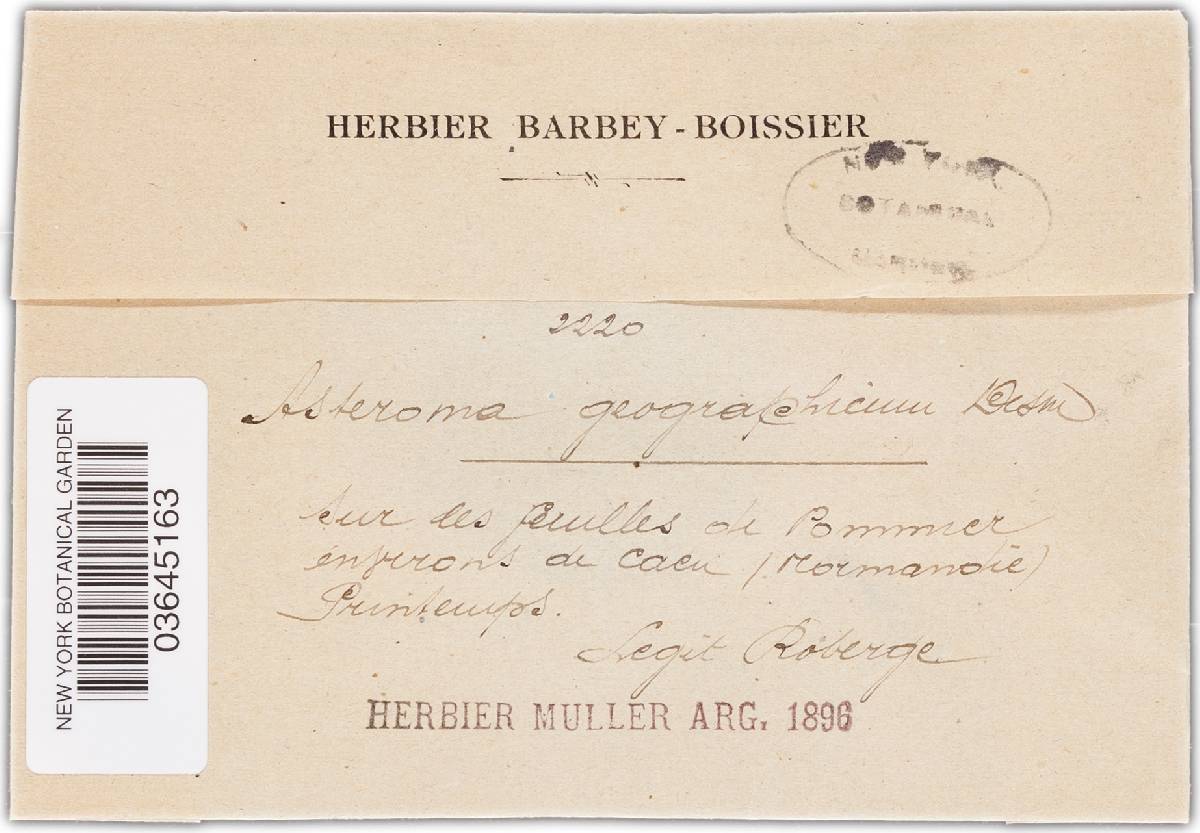 HERBIER BARBEY-BOISSIER
NEW YORK
BOTANICAL
GARDEN
2220
Asteroma geographicum Desm
sur les feuilles de Pommier
environs de Caen (Normandie)
Printemps.
Legit Roberge
HERBIER MULLER ARG. 1896
NEW YORK BOTANICAL GARDEN
03645163